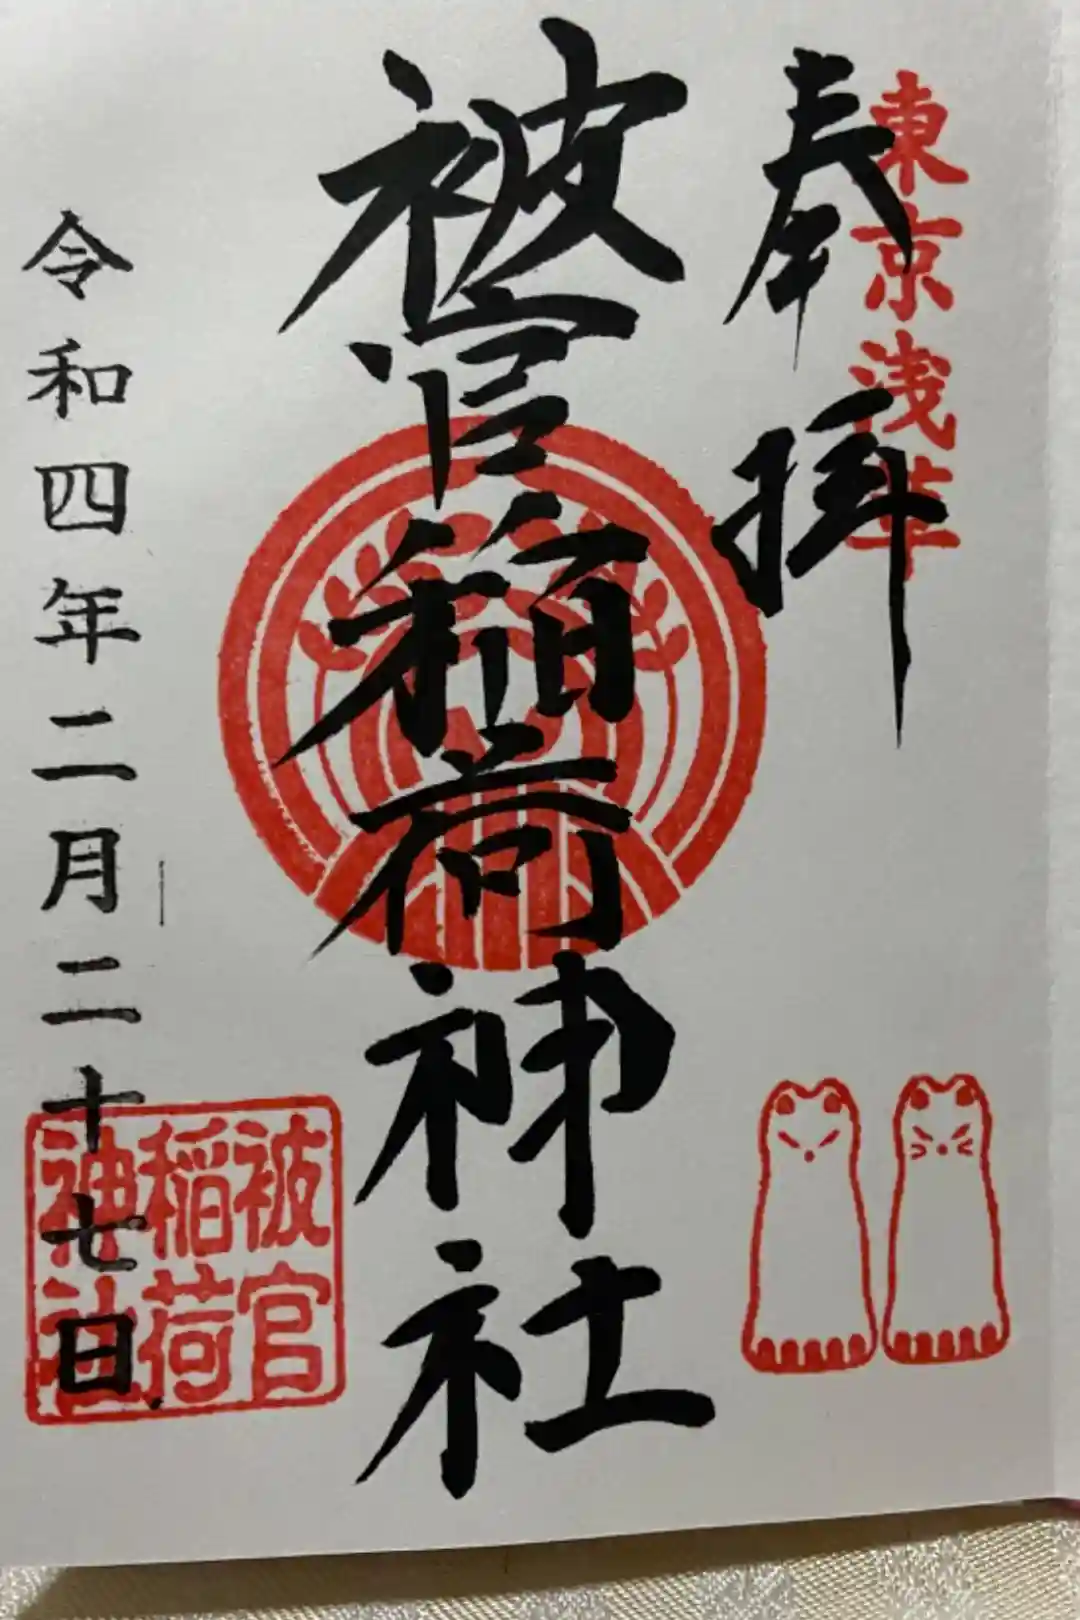 東京浅草
奉拝
被官稲荷神社
令和四年二月二十七日
被官
稲荷
神社